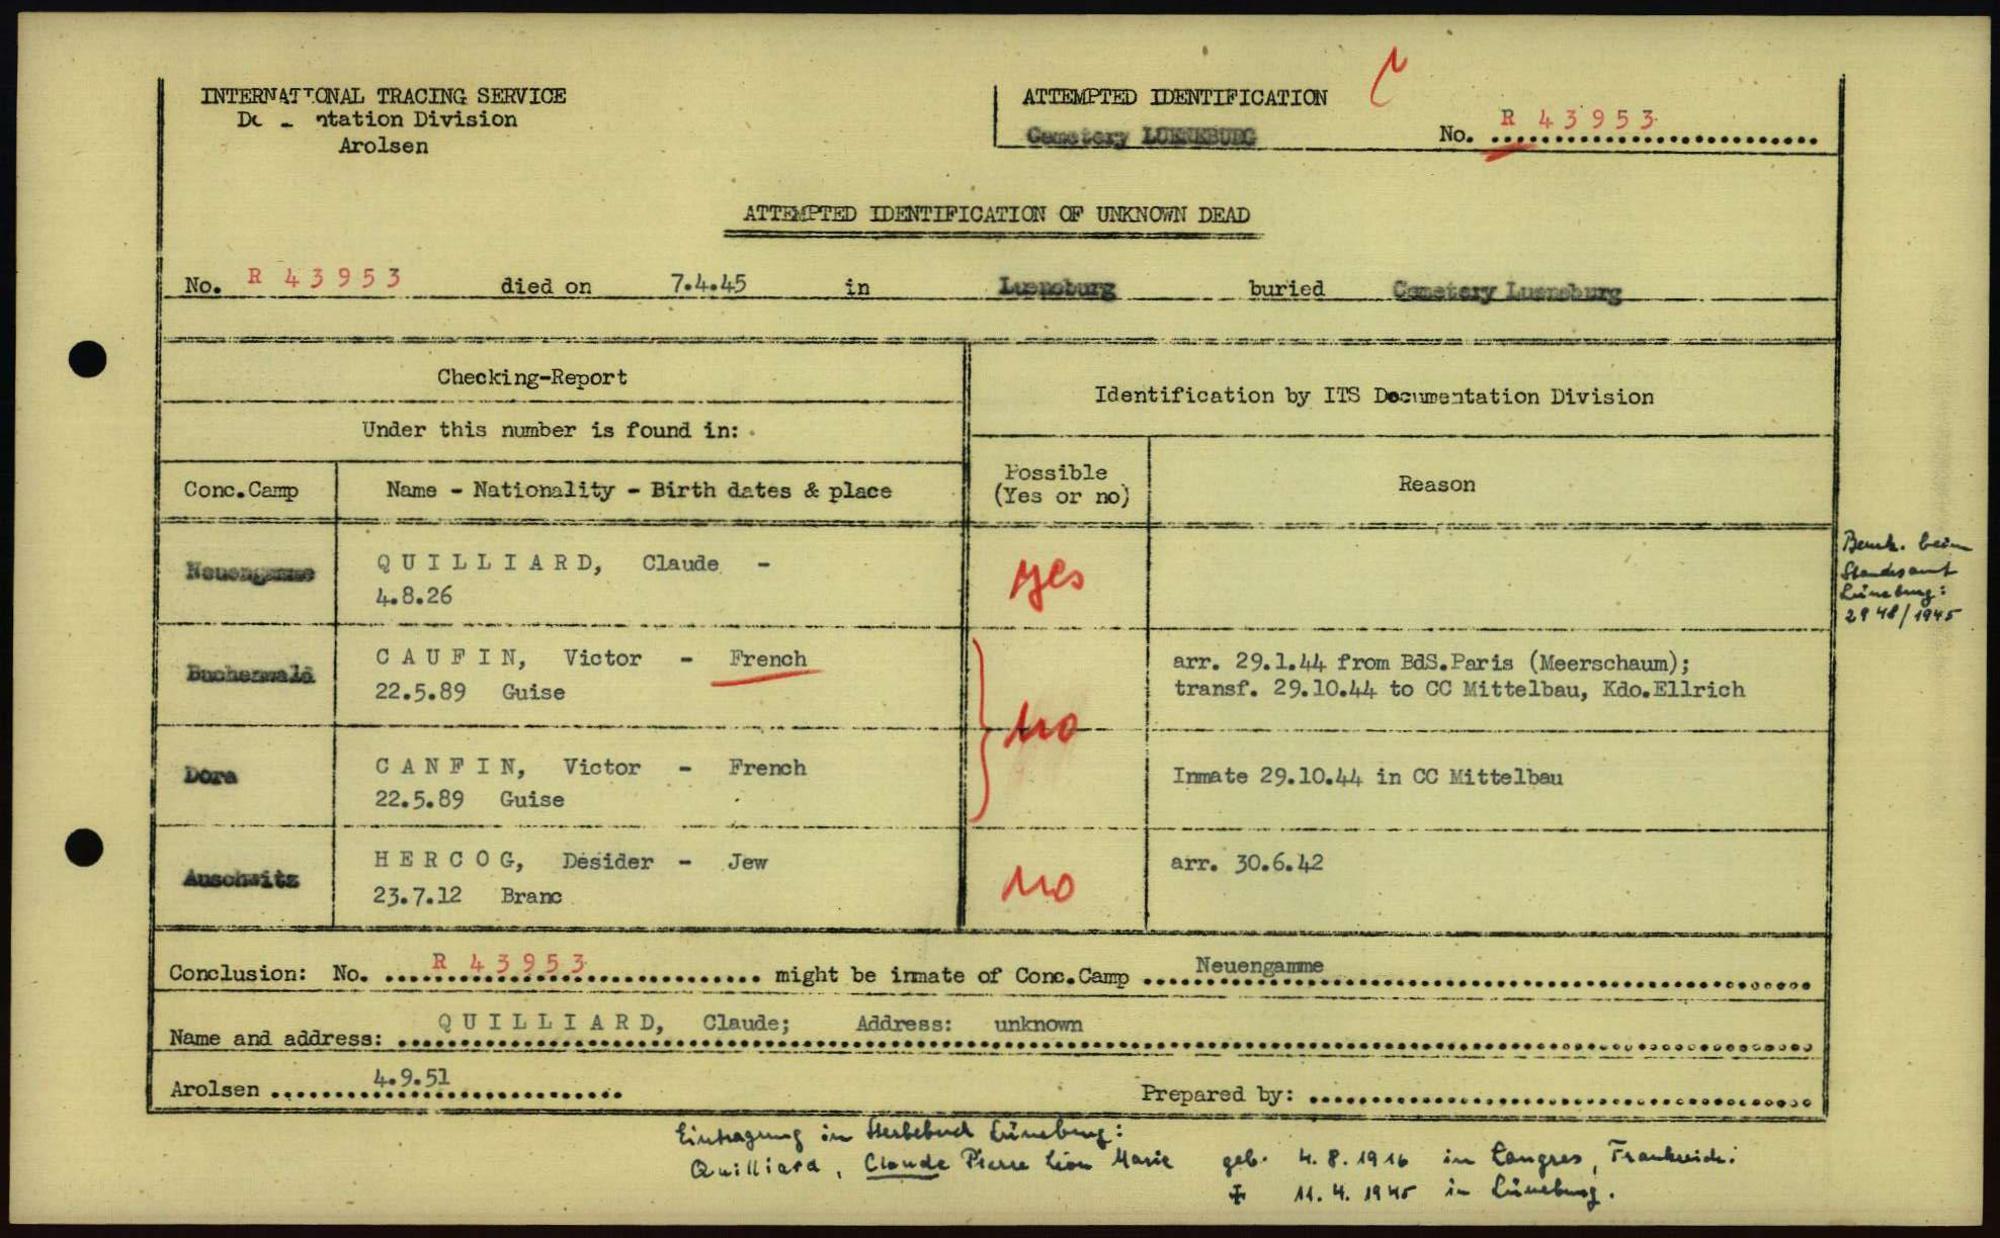 INTERNATIONAL TRACING SERVICE
ntation Division
Arolsen
ATTEMPTED IDENTIFICATION
Cemetery LUENEBURG
No. R 43953
ATTEMPTED IDENTIFICATION OF UNKNOWN DEAD
No. R 43953 died on 7.4.45 in Lueneburg buried Cemetery Lueneburg
Checking-Report
Under this number is found in:
Identification by ITS Documentation Division
Conc.Camp
Name - Nationality - Birth dates & place
Possible
(Yes or no)
Reason
Neuengamme
QUILLIARD, Claude -
4.8.26
yes
Bemk. beim
Standesamt
Lüneburg:
2948/1945
Buchenwald
CAUFIN, Victor - French
22.5.89 Guise
no
arr. 29.1.44 from BdS.Paris (Meerschaum);
transf. 29.10.44 to CC Mittelbau, Kdo.Ellrich
Dora
CANFIN, Victor - French
22.5.89 Guise
Inmate 29.10.44 in CC Mittelbau
Auschwitz
HERCOG, Desider - Jew
23.7.12 Branc
no
arr. 30.6.42
Conclusion: No. R 43953 might be inmate of Conc.Camp Neuengamme
Name and address: QUILLIARD, Claude; Address: unknown
Arolsen 4.9.51
Prepared by:
Eintragung im Sterbebuch Lüneburg:
Quilliard, Claude Pierre Léon Marie geb. 4.8.1916 in Langres, Frankreich.
11.4.1945 in Lüneburg.